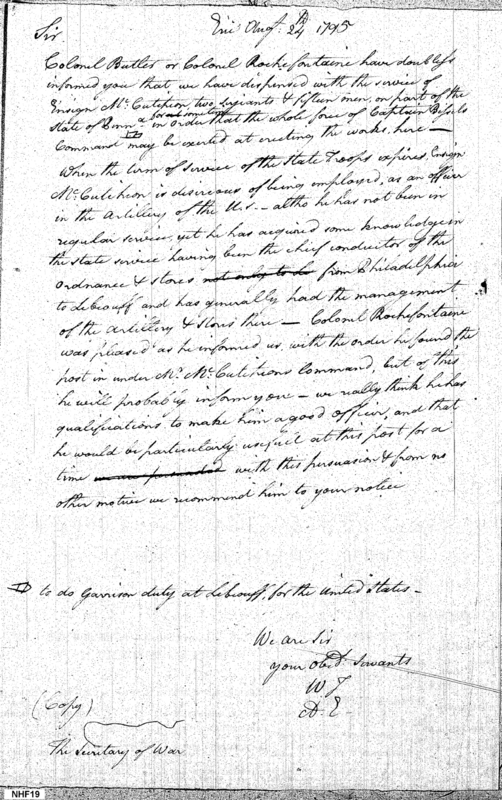 Erie Augt. 24th 1795
Sir
Colonel Butler or Colonel Rochefontaine have doubtless
informed you that we have dispensed with the service of
Ensign McCutcheon, two sergeants & fifteen men, on part of the
for some time
State of Penna in order that the whole force of Captain Bissels
Command may be exerted at erecting the works here —
When the term of service of the State Troops expires Ensign
McCutcheon is desireous of being employed, as an officer
in the Artillery of the U.S. — altho he has not been in
regular service, yet he has acquired some knowledge in
the state service having been the chief conductor of the
Ordnance & stores not only to le from Philadelphia
to Lebeouff and has generally had the management
of the artillery & stores there — Colonel Rochefontaine
was pleased as he informed us, with the order he found the
post in under Mr. McCutcheons Command, but of this
he will probably inform you — we really think he has
qualifications to make him a good officer, and that
he would be particularly usefull at this post for a
time we are persuaded with this persuasion & from no
other motive we recommend him to your notice
to do Garrison duty at Lebeouff, for the United States —
We are Sir
your Obedt. Servants
W J
A. E
(Copy)
The Secretary of War
NHF19